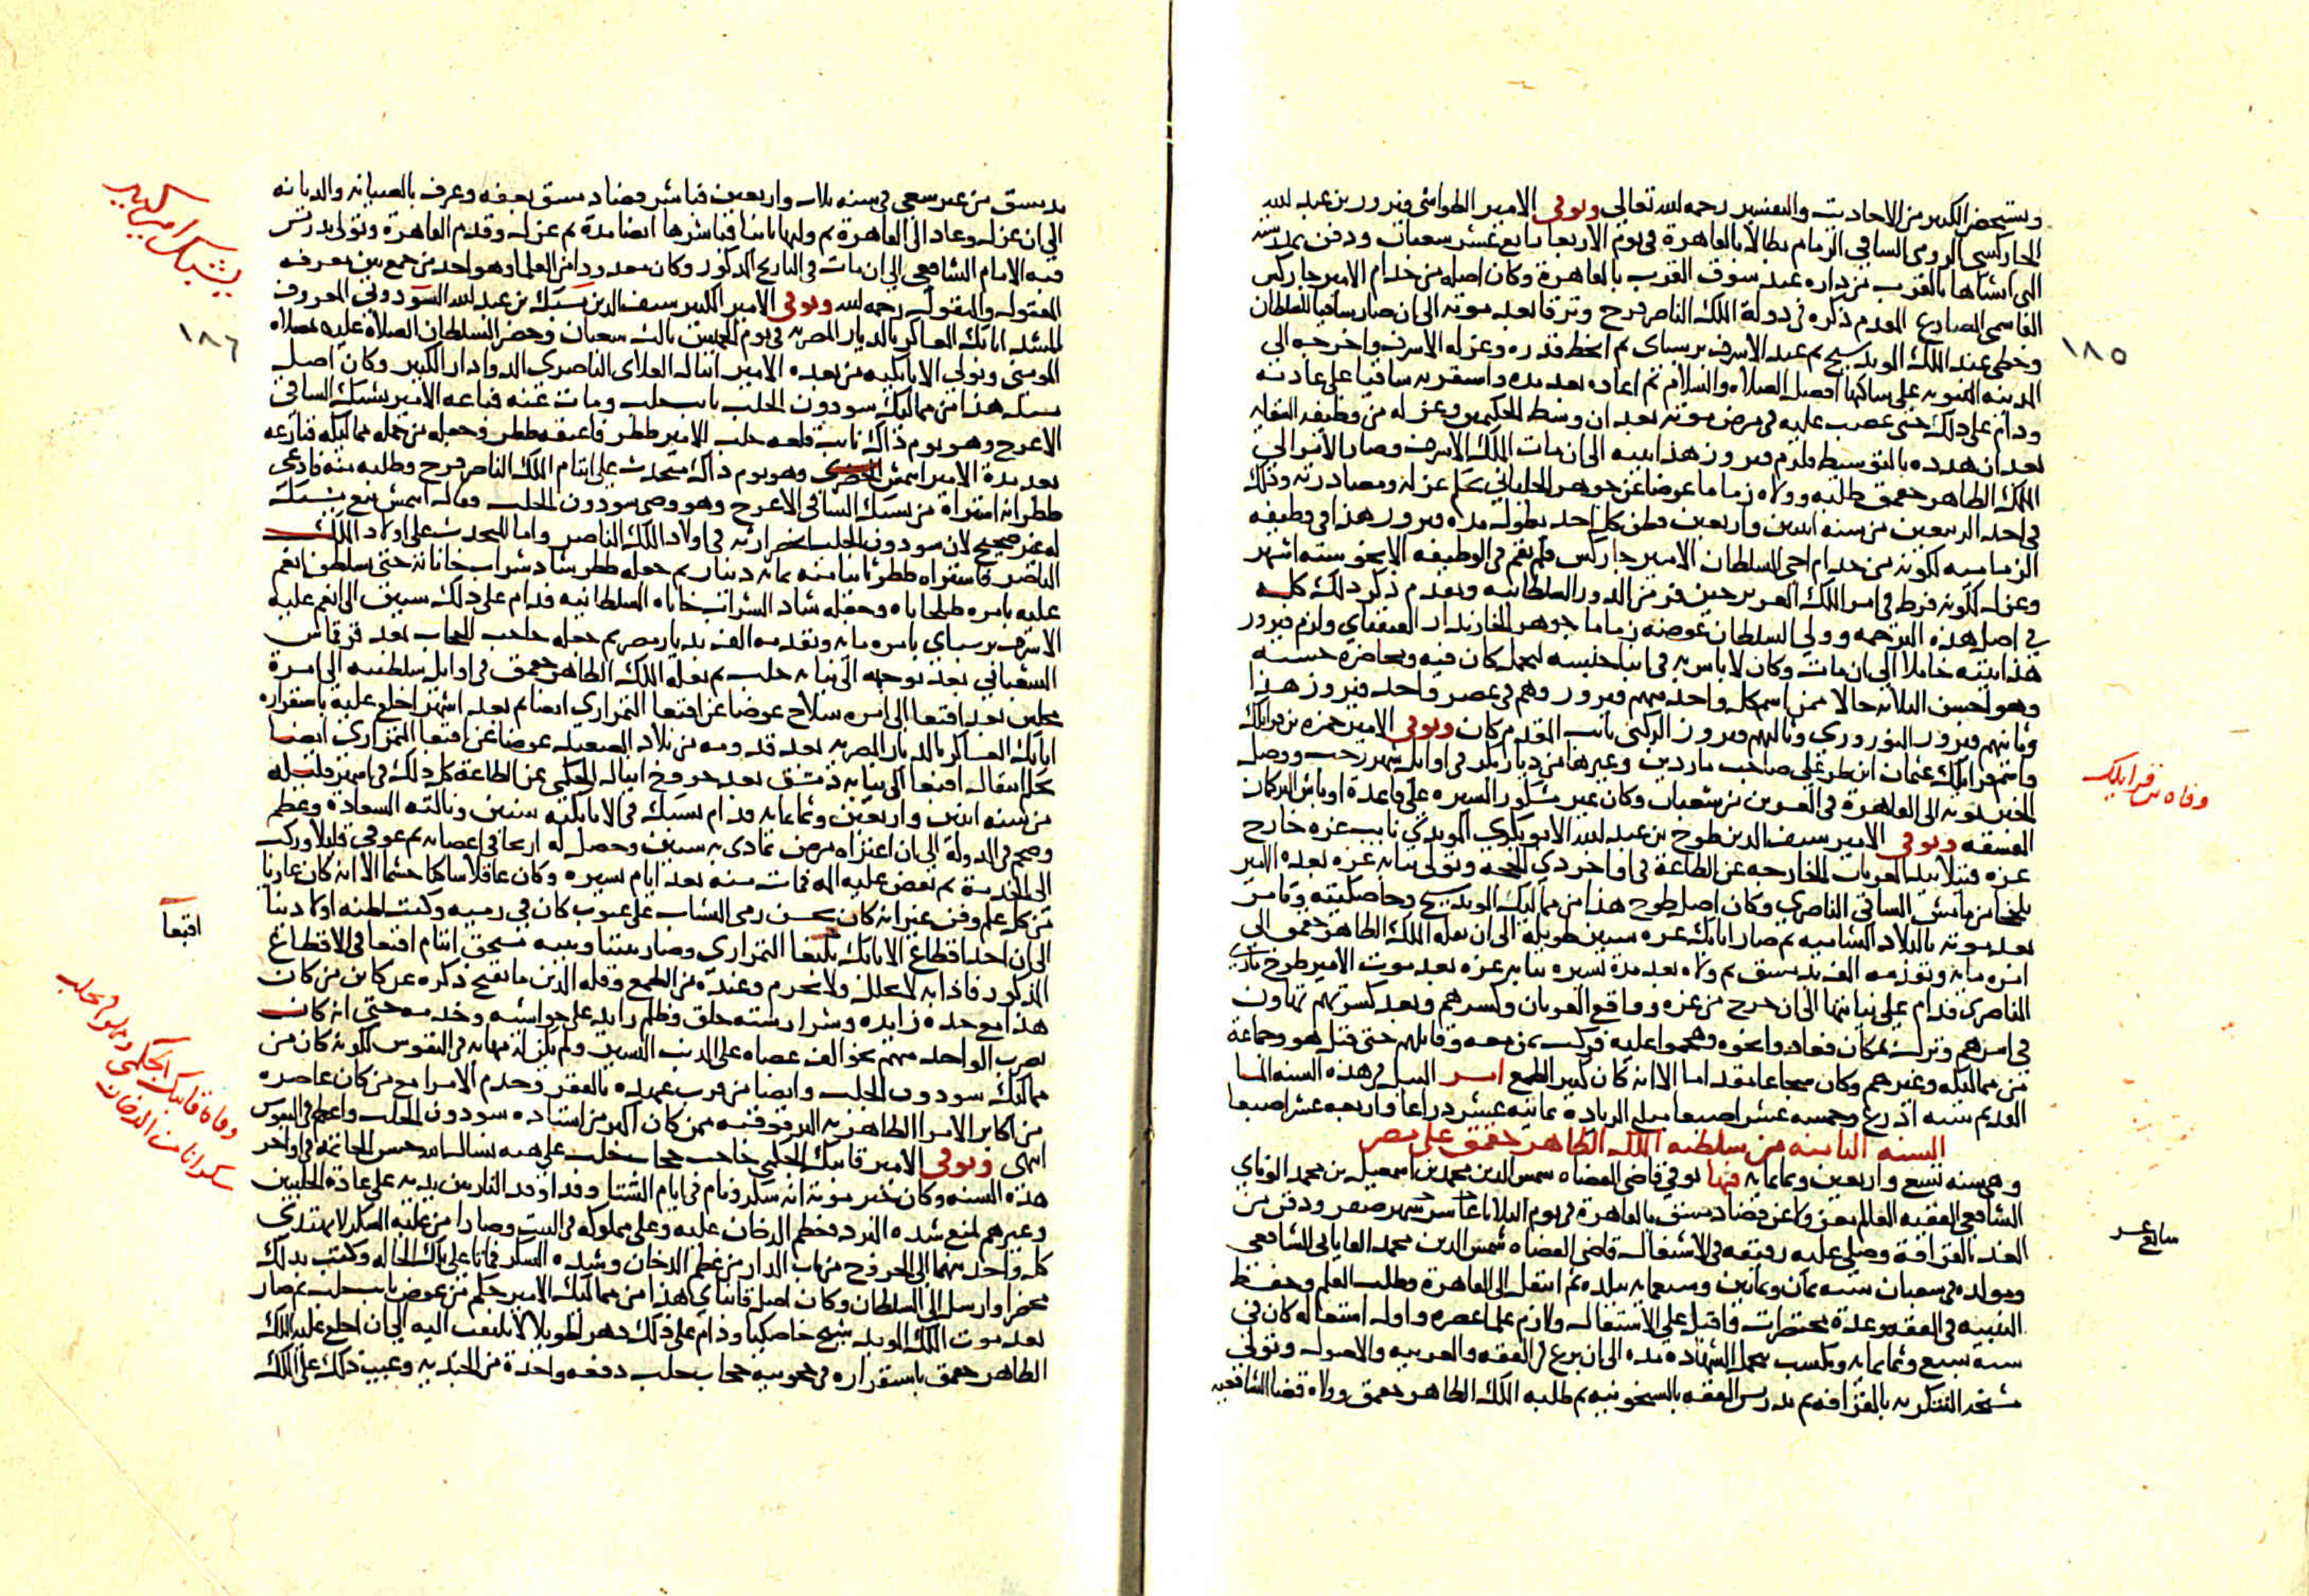 ويستحضر الكثير من الاحاديث والتفسير رحمه الله تعالى وتوفي الامير الطواشي فيروز بن عبد الله
الجاركسي الرومي الساقي الزمام بطالا بالقاهرة في يوم الاربعا رابع عشر شعبان ودفن بمدرسته
التي انشاها بالقرب من داره عند سوق القرب بالقاهرة وكان اصله من خدام الامير جاركس
القاسمي المصارع المقدم ذكره في دولة الملك الناصر فرج وترقا بعد موته الى ان صار ساقيا للسلطان
وحظي عند الملك المويد شيخ ثم عند الاشرف برسباي ثم انحط قدره وعزله الاشرف واخرجه الى
المدينة النبوية على ساكنها افضل الصلاة والسلام ثم اعاده بعد مدة واستقر به ساقيا على عادته
ودام على ذلك حتى غضب عليه في مرض موته بعد ان وسط الحكيمين وعزله من وظيفة السقاية
بعد ان هدده بالتوسيط فلزم فيروز هذا بيته الى ان مات الملك الاشرف وصار الامر الى
الملك الظاهر جقمق طلبه وولاه زماما عوضا عن جوهر الجلباني بحكم عزله ومصادرته وذلك
في احد الربيعين من سنة اثنين واربعين وظن كل احد بطول مدة فيروز هذا في وظيفة
الزمامية لكونه من خدام اخي السلطان الامير جاركس فلم يقم في الوظيفة الا نحو ستة اشهر
وعزل لكونه فرط في امر الملك العزيز حين فر من الدور السلطانية وتقدم ذكر ذلك كله
في اصل هذه الترجمة وولي السلطان عوضه زماما جوهر الخازندار القنقباي ولزم فيروز
هذا بيته خاملا الى ان مات وكان لا باس به في ابنا جنسه لتجمل كان فيه ومحاضرة حسنة
وهو احسن الثلاثة حالا ممن اسم كل واحد منهم فيروز وهم في عصر واحد فيروز هذا
وثانيهم فيروز النوروزي وثالثهم فيروز الركني نائب المقدم كان وتوفي الامير حمزه بن قرايلك
واسم قرايلك عثمان ابن طر علي صاحب ماردين وغيرها من ديار بكر في اوايل شهر رجب ووصل
الخبر بموته الى القاهرة في العشرين من شعبان وكان غير مشكور السيرة على قاعدة اوباش التركمان
الفسقة وتوفي الامير سيف الدين طوخ بن عبد الله الابوبكري المويدي نايب غزه خارج
غزه قتيلا بيد العربان الخارجه عن الطاعة في اواخر ذي الحجة وتولى نيابة غزه بعده الامير
يلخجا من مامش الساقي الناصري وكان اصل طوخ هذا من مماليك المويد شيخ وخاصكيته وتامر
بعد موته بالبلاد الشامية ثم صار اتابك غزه سنين طويلة الى ان نقله الملك الظاهر جقمق الى
امرة ماية وتقدمة الف بدمشق ثم ولاه بعد مدة يسيره نيابة غزه بعد موت الامير طوخ مازي
الناصري فدام على نيابتها الى ان خرج من غزه وواقع العربان وكسرهم وبعد كسرتهم تهاون
في امرهم ونزل بمكان فعادوا نحوه وهجموا عليه فركب بمن معه وقاتلهم حتى قتل هو وجماعة
من مماليكه وغيرهم وكان شجاعا مقداما الا انه كان كثير الطمع امر النيل في هذه السنة الما
القديم ستة اذرع وخمسة عشر اصبعا مبلغ الزيادة ثمانية عشر ذراعا واربعة عشر اصبعا
السنة الثامنة من سلطنة الملك الظاهر جقمق على مصر
وهي سنة تسع واربعين وثمانماية فيها توفي قاضي القضاة شمس الدين محمد بن اسمعيل بن محمد الوناي
الشافعي الفقيه العالم معزولا عن قضا دمشق بالقاهرة في يوم الثلاثا عاشر شهر صفر ودفن من
الغد بالقرافة وصلى عليه رفيقه في الاشتغال قاضي القضاة شمس الدين محمد القاياتي الشافعي
ومولده في شعبان سنة ثمان وثمانين وسبعماية ببلده ثم انتقل الى القاهرة وطلب العلم وحفظ
التنبيه في الفقه وعدة مختصرات واقبل على الاشتغال ولازم علما عصره واول اشتغاله كان في
سنة سبع وثمانماية وتكسب بتحمل الشهادة مدة الى ان برع في الفقه والعربية والاصول وتولى
مشيخة التنكزية بالقرافة ثم تدريس الفقه بالشيخونية ثم طلبه الملك الظاهر جقمق وولاه قضا الشافعية
١٨٥
وفاة بن قرايلك
سابع عشر
بدمشق من غير سعي في سنة ثلاث واربعين فباشر قضا دمشق بعفة وعرف بالصيانة والديانة
الى ان عزل وعاد الى القاهرة ثم وليها ثانيا فباشرها ايضا مدة ثم عزل وقدم القاهرة وتولى تدريس
قبة الامام الشافعي الى ان مات في التاريخ المذكور وكان معدودا من العلما وهو احد من جمع بين معرفة
المنقول والمعقول رحمه الله وتوفي الامير الكبير سيف الدين يشبك بن عبد الله السودوني المعروف
بالمشد اتابك العساكر بالديار المصرية في يوم الخميس ثالث شعبان وحضر السلطان الصلاة عليه بمصلاة
المومني وتولى الاتابكية من بعده الامير اينال العلاي الناصري الدوادار الكبير وكان اصل
يشبك هذا من مماليك سودون الجلب نائب حلب ومات عنه فباعه الامير يشبك الساقي
الاعرج وهو يوم ذاك نايب قلعة حلب للامير ططر فاعتقه ططر وجعله من جملة مماليكه فنازعه
بعد مدة الامير ايتمش الخضري وهو يوم ذاك متحدث على ايتام الملك الناصر فرج وطلبه منه فادعى
ططر انه اشتراه من يشبك الساقي الاعرج وهو وصي سودون الجلب وقال ايتمش بيع يشبك
له غير صحيح لان سودون الجلب انحصر ارثه في اولاد الملك الناصر وانا المتحدث على اولاد الملك
الناصر فاشتراه ططر ثانيا منه بماية دينار ثم جعله ططر شاد شراب خاناته حتى تسلطن انعم
عليه بامره طبلخاناه وجعله شاد الشراب خاناه السلطانية فدام على ذلك سنين الى انعم عليه
الاشرف برسباي بامره ماية وتقدمة الف بديار مصر ثم جعله حاجب الحجاب بعد قرقماس
الشعباني بعد توجهه الى نيابة حلب ثم نقله الملك الظاهر جقمق في اوايل سلطنته الى امرة
مجلس بعد اقبغا الى امره سلاح عوضا عن اقبغا التمرازي ايضا ثم بعد اشهر اخلع عليه باستقراره
اتابك العساكر بالديار المصرية بعد قدومه من بلاد الصعيد عوضا عن اقبغا التمرازي ايضا
بحكم انتقال اقبغا الى نيابة دمشق بعد خروج اينال الجكمي عن الطاعة كل ذلك في اشهر قليلة
من سنة اثنين واربعين وثمانماية فدام يشبك في الاتابكية سنين ونالته السعادة وعظم
وضخم في الدولة الى ان اعتراه مرض تمادى به سنين وحصل له ارتخا في اعضايه ثم عوفي قليلا وركب
الى الخدمة ثم نقض عليه المه فمات منه بعد ايام يسيره وكان عاقلا ساكنا حشما الا انه كان عاريا
من كل علم وفن غير انه كان يحسن رمي النشاب على عيوب كان في رميه وكنت لطنه اولا دينا
الى ان اخذ اقطاع الاتابك اقبغا التمرازي وصار بيننا وبينه مستحق ايتام اقبغا في الاقطاع
المذكور فاذا به لا يحلل ولا يحرم وعنده من الطمع وقلة الدين ما يقبح ذكره عن كائن من كان
هذا مع حده زايده وشراسة خلق وظلم زايد على حواشيه وخدمه حتى انه كان
يضرب الواحد منهم نحو الف عصاه على الذنب اليسير ولم يكن له مهابة في النفوس لكونه كان من
مماليك سودون الجلب وايضا من قرب عهده بالفقر وخدم الامرا مع من كان عاصره
من اكابر الامرا الظاهرية البرقوقية ممن كان اكبر من استاذه سودون الجلب واعظم في النفوس
انتهى وتوفي الامير قانبك الجكمي حاجب حجاب حلب على هيه نسال الله حسن الخاتمة في اواخر
هذه السنة وكان خبر موته انه سكر ونام في ايام الشتا وقد اوقد النار بين يديه على عادة الحلبيين
وغيرهم لمنع شدة البرد فعظم الدخان عليه وعلى مملوكه في البيت وصارا من غلبة السكر لا يهتدي
كل واحد منهما الى الخروج من باب الدار من عظم الدخان وشدة السكر فماتا على تلك الحالة وكتب بذلك
محضرا وارسل الى السلطان وكان اصل قانباي هذا من مماليك الامير جكم من عوض نايب حلب ثم صار
بعد موت الملك المويد شيخ خاصكيا ودام على ذلك دهرا طويلا لا يلتفت اليه الى ان اخلع عليه الملك
الظاهر جقمق باستقراره في حجوبية حجاب حلب دفعة واحدة من الجندية وعيب ذلك على الملك
يشبك امير كبير
١٨٦
اقبغا
وفاة قانبك الجكمي
سكرانا من الدخان